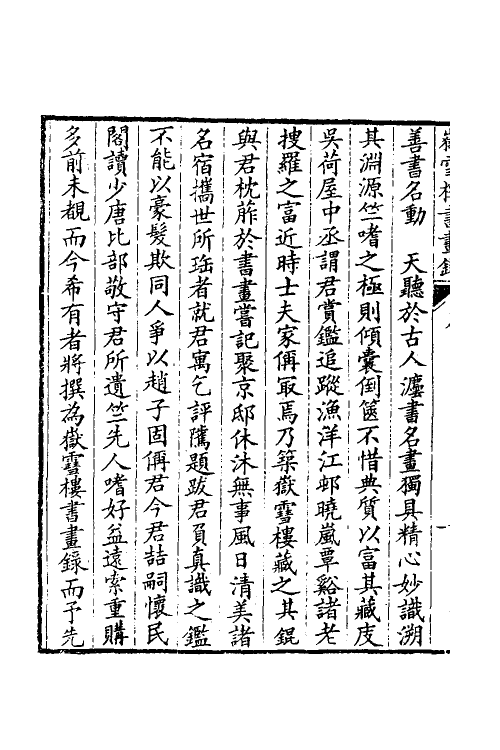 嶽雪樓書畫錄
善書名動　天聽於古人灋書名畫獨具精心妙識溯
其淵源竺嗜之極則傾囊倒篋不惜典質以富其藏庋
吳荷屋中丞謂君賞鑑追蹤漁洋江邨曉嵐覃谿諸老
搜羅之富近時士夫家偁冣焉乃築嶽雪樓藏之其錕
與君枕葄於書畫嘗記聚京邸休沐無事風日清美諸
名宿攜世所珤者就君寓乞評騭題跋君負真識之鑑
不能以豪髮欺同人爭以趙子固偁君今君喆嗣懷民
閣讀少唐比部敬守君所遺竺先人嗜好益遠索重購
多前未覩而今希有者將撰為嶽雪樓書畫錄而予先